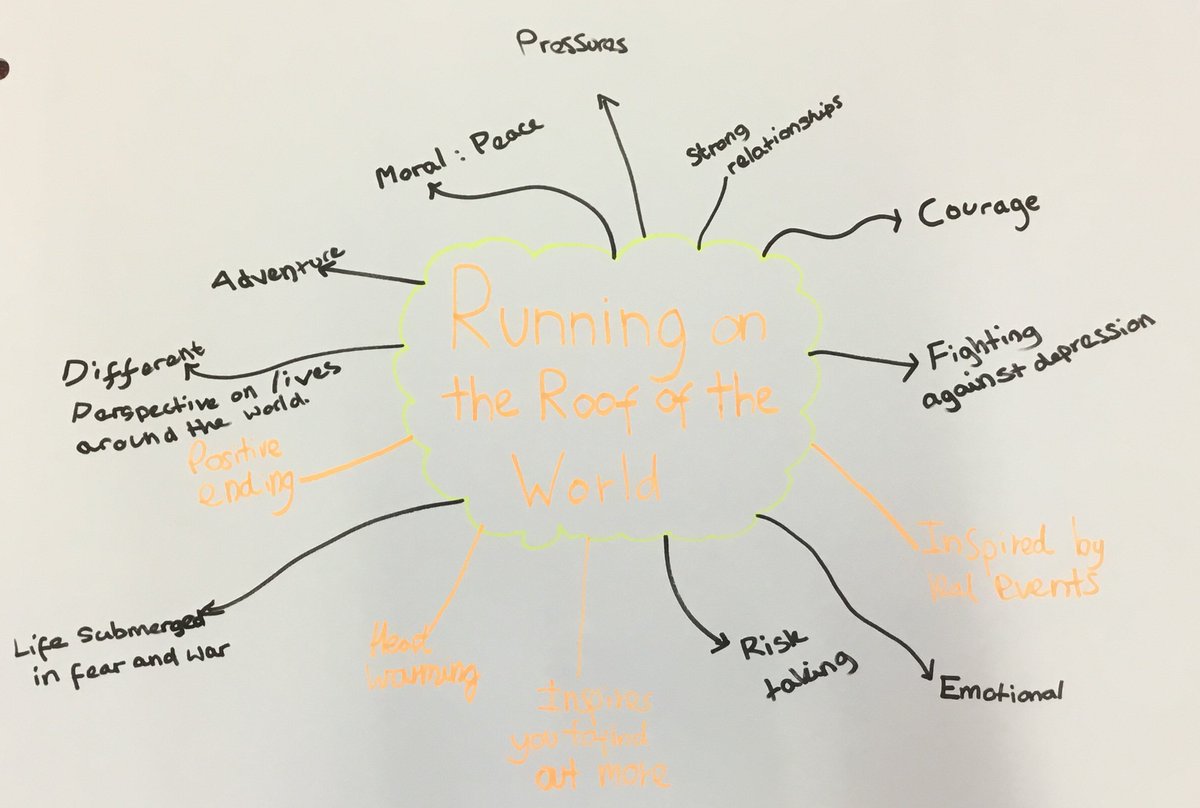 Pressures
Moral : Peace
Strong
relationships
Courage
Adventure
Running on
the Roof of the
World
Different
Perspective on lives
around the world.
Fighting
against depression
Positive
ending
Inspired by
real events
Life Submerged
in fear and war
Heart
warming
Inspires
you to find
out more
Risk
taking
Emotional